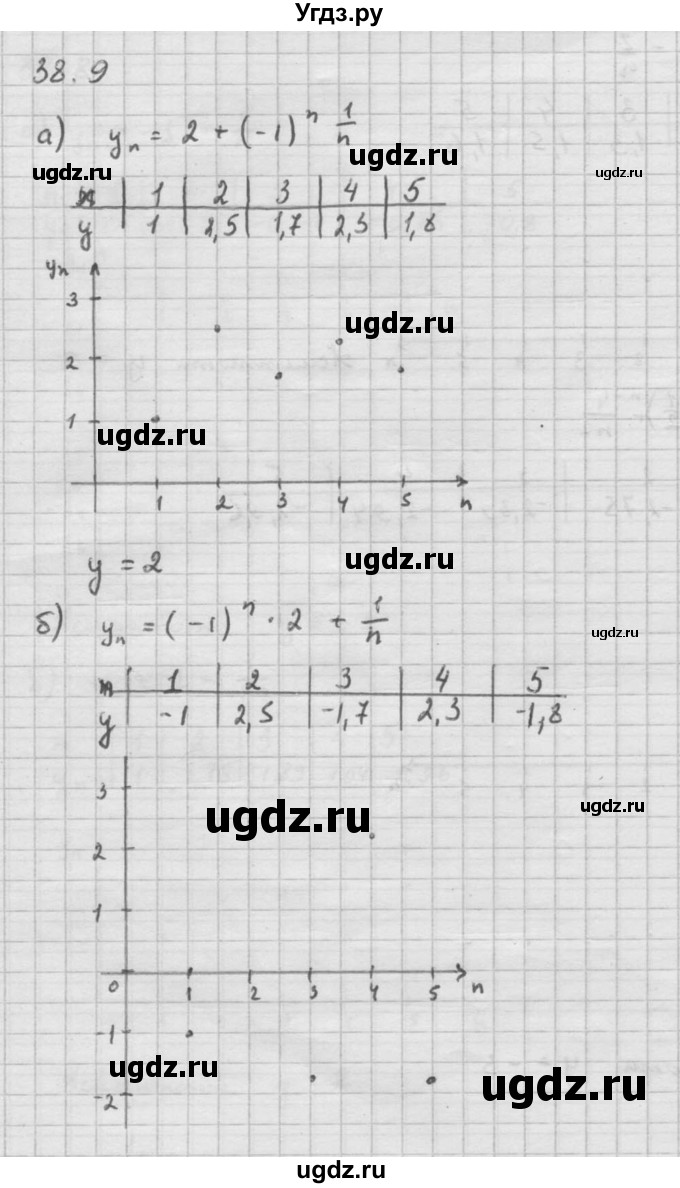 Угдз.ру
38.9
а) yₙ = 2 + (-1)ⁿ 1/n
ugdz.ru
ugdz.ru
ugdz.ru
n | 1 | 2 | 3 | 4 | 5
y | 1 | 2,5 | 1,7 | 2,3 | 1,8
yₙ
3
ugdz.ru
2
1
ugdz.ru
1 2 3 4 5 n
y = 2
ugdz.ru
б) yₙ = (-1)ⁿ · 2 + 1/n
ugdz.ru
n | 1 | 2 | 3 | 4 | 5
y | -1 | 2,5 | -1,7 | 2,3 | -1,8
3
ugdz.ru
ugdz.ru
2
1
0 1 2 3 4 5 n
-1
ugdz.ru
ugdz.ru
-2
ugdz.ru